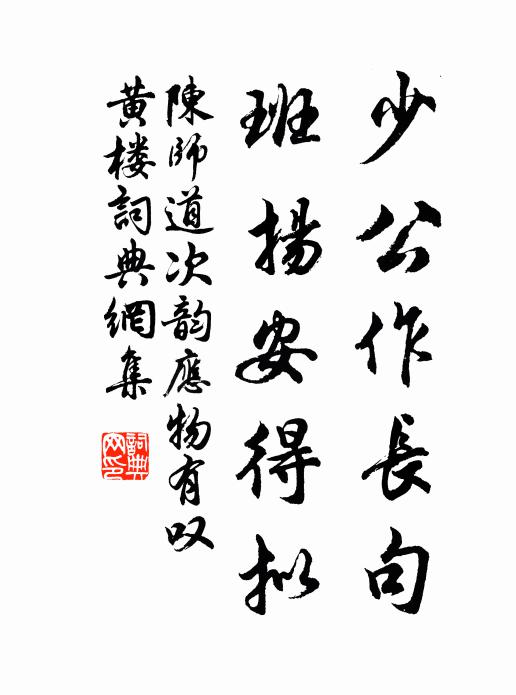 少公作長句
班揚安得拟
陳師道次韵應物有叹
黄楼詞典網集
詞典网印